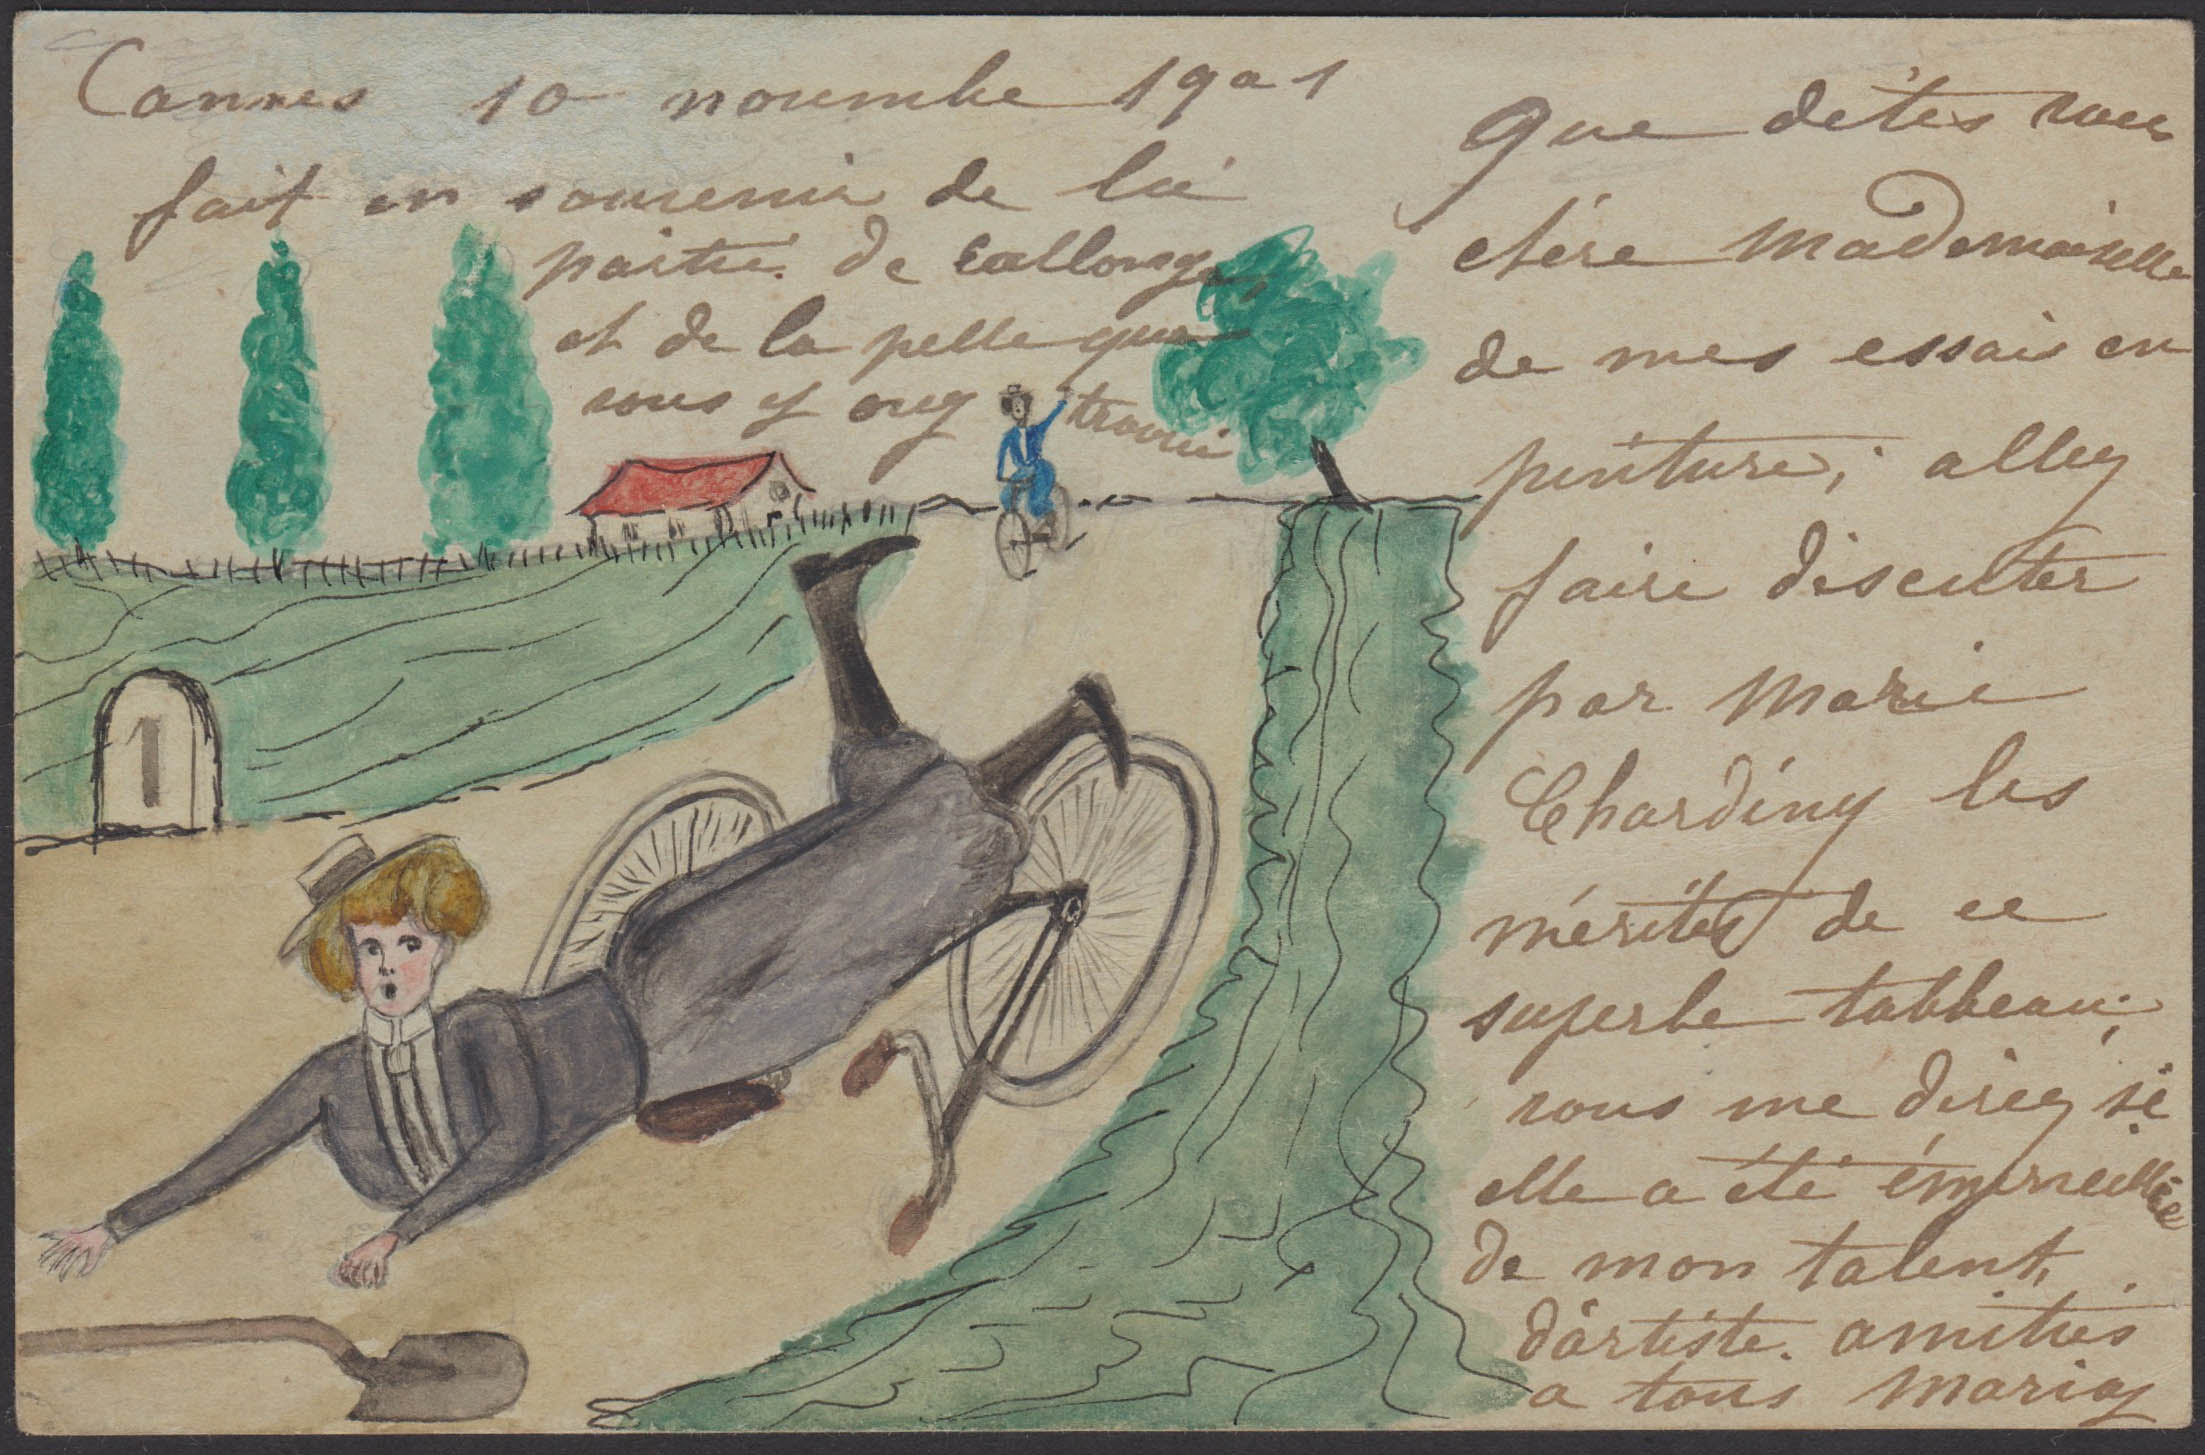 Cannes 10 novembre 1901
fait en souvenir de la
partie de Callonge,
et de la pelle que
vous y avez trouvé
1
Que dites vous
chère Mademoiselle
de mes essais en
peinture; allez
faire discuter
par Marie
Chardiny les
mérites de ce
superbe tableau;
vous me direz si
elle a été émerveillée
de mon talent,
d'artiste. amitiés
a tous Mariaz